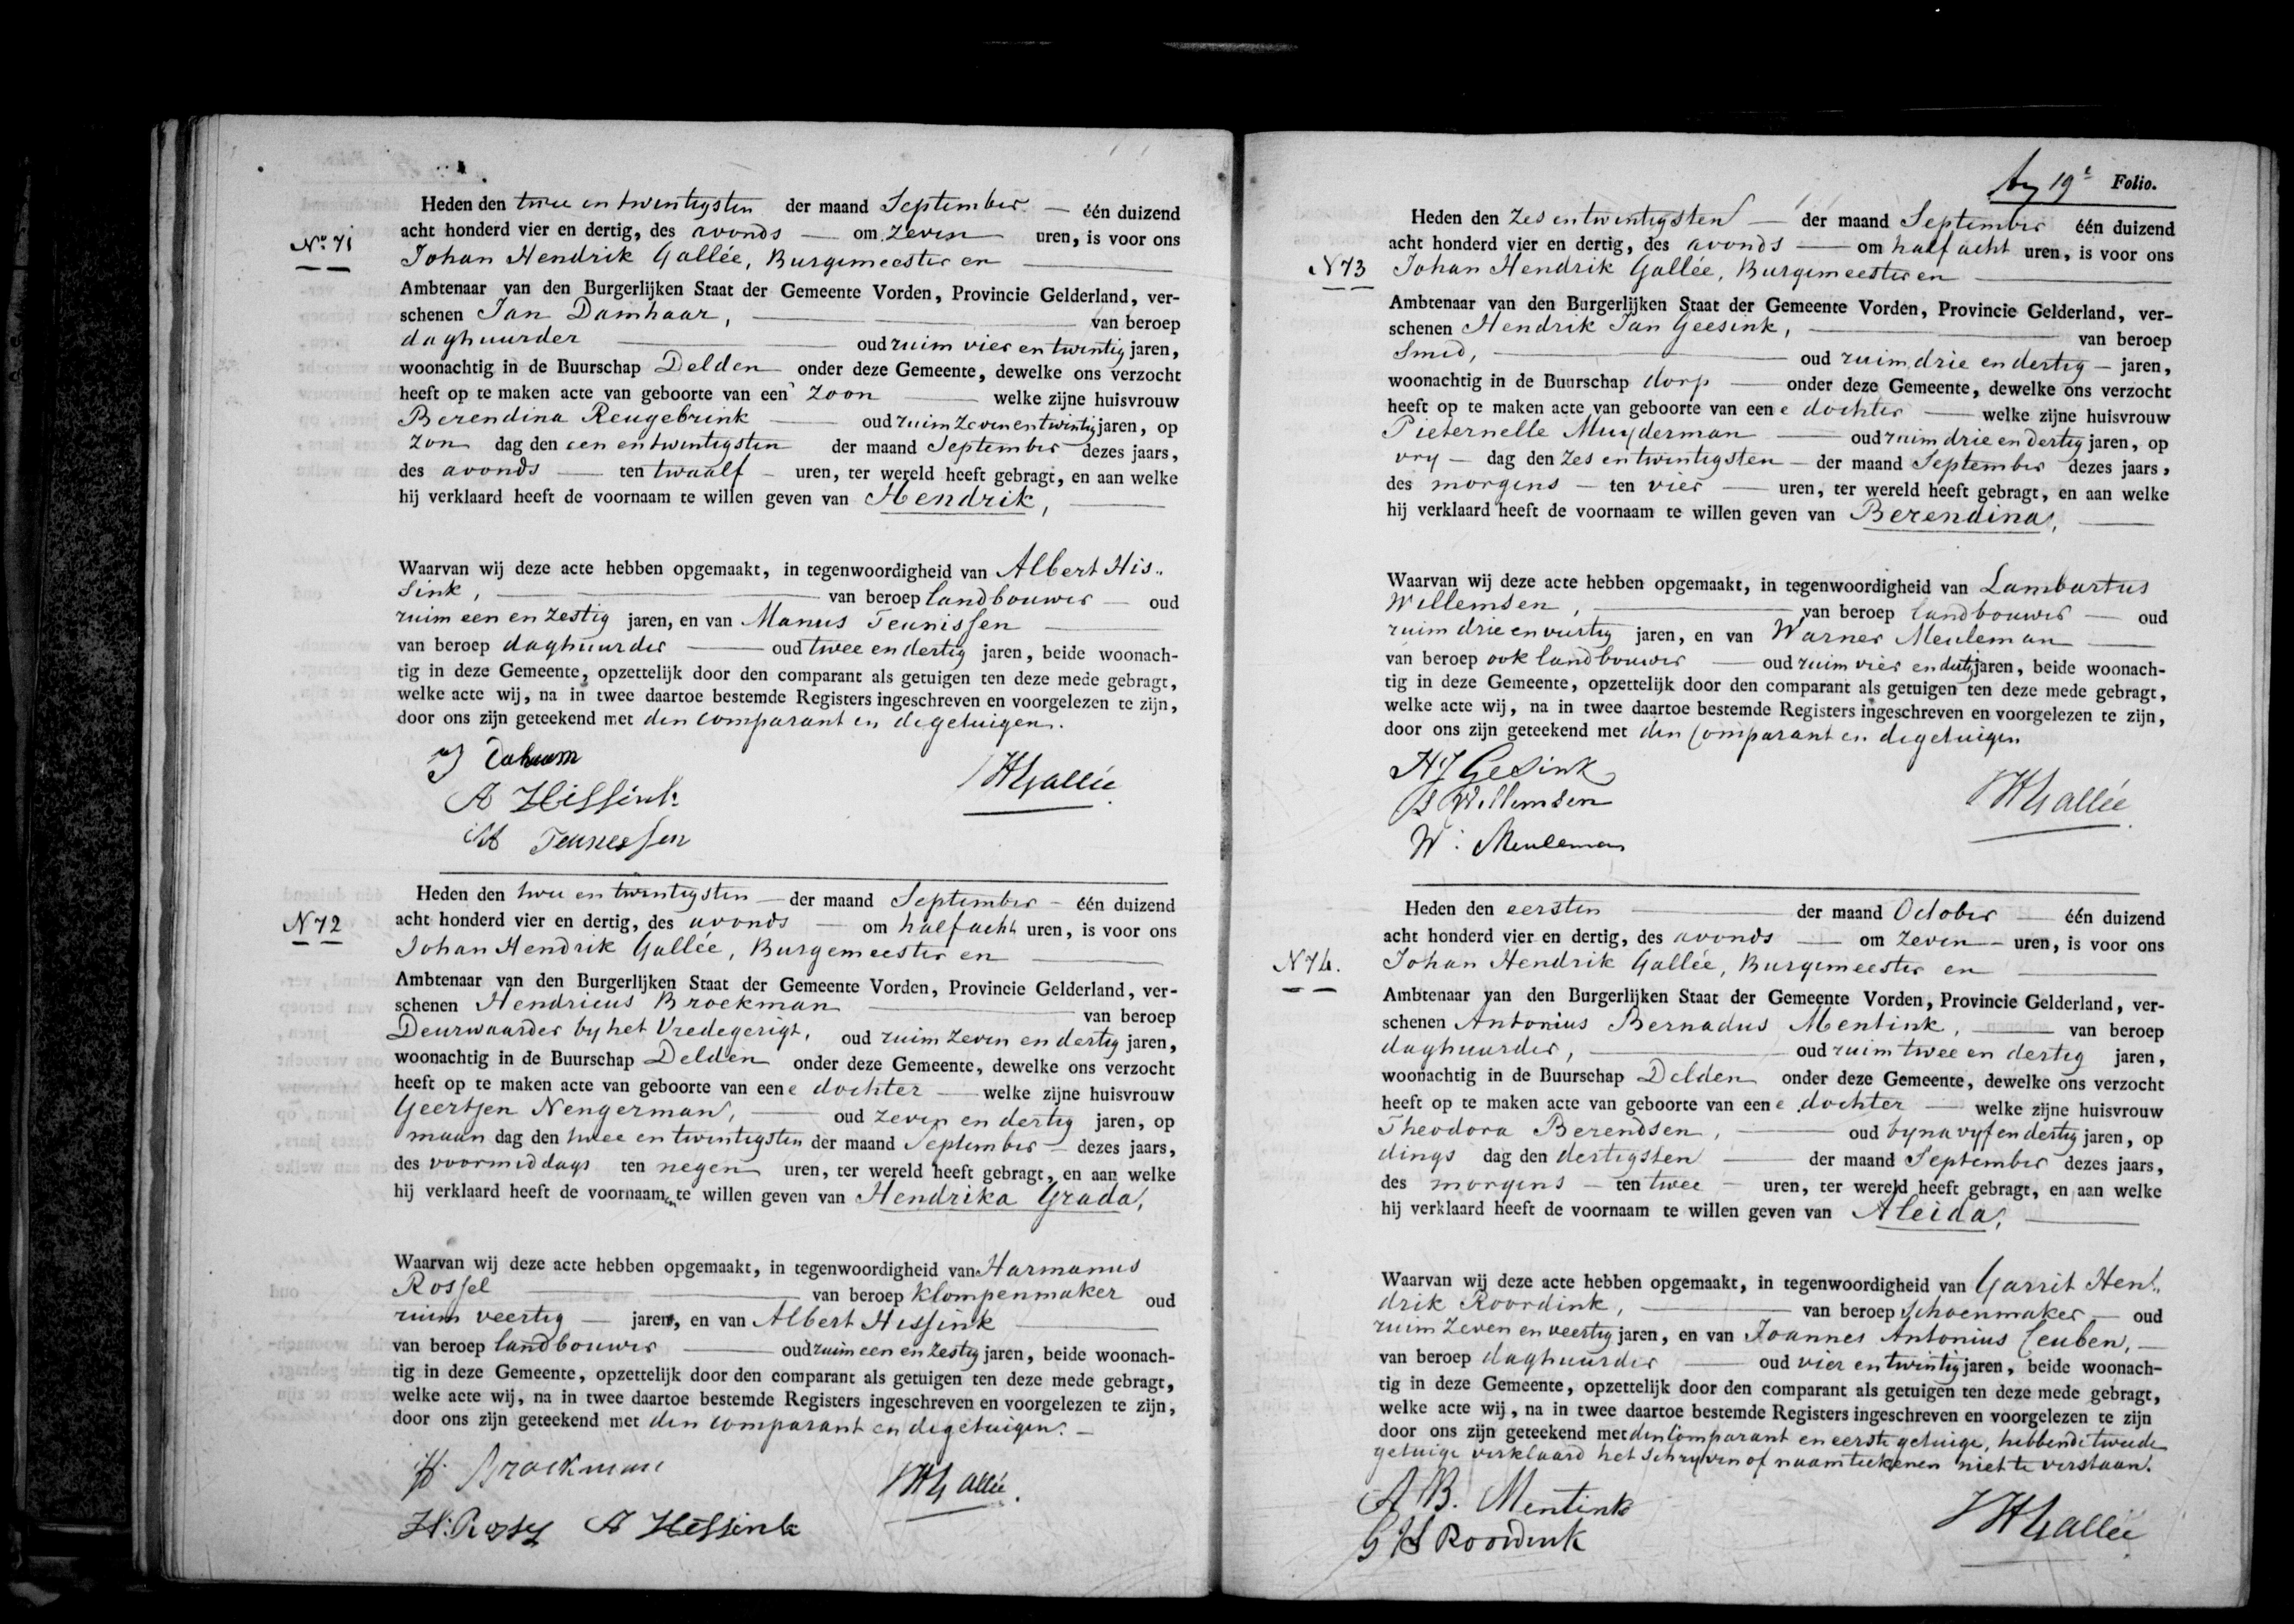 Heden den twee en twintigsten der maand September — één duizend
No. 71
acht honderd vier en dertig, des avonds — om zeven uren, is voor ons
Johan Hendrik Gallée, Burgemeester en
Ambtenaar van den Burgerlijken Staat der Gemeente Vorden, Provincie Gelderland, ver-
schenen Jan Damhaar, — van beroep
daghuurder — oud ruim vier en twintig jaren,
woonachtig in de Buurschap Delden onder deze Gemeente, dewelke ons verzocht
heeft op te maken acte van geboorte van een zoon — welke zijne huisvrouw
Berendina Reugebrink — oud ruim zeven en twintig jaren, op
zon dag den een en twintigsten der maand September dezes jaars,
des avonds — ten twaalf — uren, ter wereld heeft gebragt, en aan welke
hij verklaard heeft de voornaam te willen geven van Hendrik,
Waarvan wij deze acte hebben opgemaakt, in tegenwoordigheid van Albert His„
sink, — van beroep landbouwer — oud
ruim een en zestig jaren, en van Manus Teunissen
van beroep daghuurder — oud twee en dertig jaren, beide woonach-
tig in deze Gemeente, opzettelijk door den comparant als getuigen ten deze mede gebragt,
welke acte wij, na in twee daartoe bestemde Registers ingeschreven en voorgelezen te zijn,
door ons zijn geteekend met den comparant en de getuigen.
A Hissink
JHGallée
M Teunessen
Heden den twee en twintigsten — der maand September — één duizend
N 72
acht honderd vier en dertig, des avonds — om half acht uren, is voor ons
Johan Hendrik Gallée, Burgemeester en
Ambtenaar van den Burgerlijken Staat der Gemeente Vorden, Provincie Gelderland, ver-
schenen Hendricus Broekman — van beroep
Deurwaarder by het Vredegerigt, oud ruim zeven en dertig jaren,
woonachtig in de Buurschap Delden onder deze Gemeente, dewelke ons verzocht
heeft op te maken acte van geboorte van eene dochter — welke zijne huisvrouw
Geertjen Nengerman, — oud zeven en dertig jaren, op
maan dag den twee en twintigsten der maand September — dezes jaars,
des voormiddags ten negen uren, ter wereld heeft gebragt, en aan welke
hij verklaard heeft de voornaamen te willen geven van Hendrika Grada,
Waarvan wij deze acte hebben opgemaakt, in tegenwoordigheid van Harmanus
Rossel — van beroep klompenmaker oud
ruim veertig — jaren, en van Albert Hissink
van beroep landbouwer — oud ruim een en zestig jaren, beide woonach-
tig in deze Gemeente, opzettelijk door den comparant als getuigen ten deze mede gebragt,
welke acte wij, na in twee daartoe bestemde Registers ingeschreven en voorgelezen te zijn,
door ons zijn geteekend met den comparant en de getuigen. —
H. Broekman
JHGallée
A Hissink
19e Folio.
Heden den zes en twintigsten — der maand September één duizend
acht honderd vier en dertig, des avonds — om half acht uren, is voor ons
N 73
Johan Hendrik Gallée, Burgemeester en
Ambtenaar van den Burgerlijken Staat der Gemeente Vorden, Provincie Gelderland, ver-
schenen Hendrik Jan Geesink, — van beroep
Smid, — oud ruim drie en dertig — jaren,
woonachtig in de Buurschap dorp — onder deze Gemeente, dewelke ons verzocht
heeft op te maken acte van geboorte van eene dochter — welke zijne huisvrouw
Pieternelle Muyderman — oud ruim drie en dertig jaren, op
vry — dag den zes en twintigsten — der maand September dezes jaars,
des morgens — ten vier — uren, ter wereld heeft gebragt, en aan welke
hij verklaard heeft de voornaam te willen geven van Berendina,
Waarvan wij deze acte hebben opgemaakt, in tegenwoordigheid van Lambartus
Willemsen, — van beroep landbouwer — oud
ruim drie en veertig jaren, en van Warner Meuleman
van beroep ook landbouwer — oud ruim vier en dertig jaren, beide woonach-
tig in deze Gemeente, opzettelijk door den comparant als getuigen ten deze mede gebragt,
welke acte wij, na in twee daartoe bestemde Registers ingeschreven en voorgelezen te zijn,
door ons zijn geteekend met den Comparant en de getuigen
HJ Gesink
L Willemsen
JHGallée
W: Meuleman
Heden den eersten — der maand October — één duizend
acht honderd vier en dertig, des avonds — om zeven — uren, is voor ons
N 74.
Johan Hendrik Gallée, Burgemeester en
Ambtenaar van den Burgerlijken Staat der Gemeente Vorden, Provincie Gelderland, ver-
schenen Antonius Bernadus Mentink, — van beroep
daghuurder, — oud ruim twee en dertig jaren,
woonachtig in de Buurschap Delden onder deze Gemeente, dewelke ons verzocht
heeft op te maken acte van geboorte van eene dochter — welke zijne huisvrouw
Theodora Berendsen, — oud byna vyf en dertig jaren, op
dings dag den dertigsten — der maand September dezes jaars,
des morgens — ten twee — uren, ter wereld heeft gebragt, en aan welke
hij verklaard heeft de voornaam te willen geven van Aleida,
Waarvan wij deze acte hebben opgemaakt, in tegenwoordigheid van Garrit Hen„
drik Roordink, — van beroep schoenmaker — oud
ruim zeven en veertig jaren, en van Joannes Antonius Ceuben, —
van beroep daghuurder — oud vier en twintig jaren, beide woonach-
tig in deze Gemeente, opzettelijk door den comparant als getuigen ten deze mede gebragt,
welke acte wij, na in twee daartoe bestemde Registers ingeschreven en voorgelezen te zijn
door ons zijn geteekend met den Comparant en eerste getuige, hebbende tweede
getuige verklaard het schryven of naamteekenen niet te verstaan.
A B. Mentink
JHGallée
G H Roordink